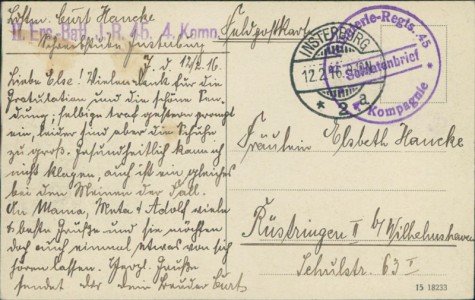 Löttm. Curt Hancke
II. Ers.-Batl. J.-R. 45. 4. Komp.
Schreibstube Insterburg
J. d. 12/2. 16.
Liebe Else! Vielen Dank für die
Gratulation und die schöne Sen-
dung; selbige traf gestern prompt
ein, leider sind aber die Schuhe
zu groß. Gesundheitlich kann ich
nicht klagen, auch ist ein gleiches
bei den Meinen der Fall.
An Mama, Meta & Adolf viele
& beste Grüße und sie möchten
doch auch einmal etwas von sich
hören lassen. Herzl. Grüße
sendet dir dein Bruder Curt
Feldpostkarte
INSTERBURG
12.2.16.
* 2 a
-Regts. 45
Soldatenbrief
Kompagnie *
Fräulein Elsbeth Hancke
Rüstringen II b/Wilhelmshaven
Schulstr. 63 I
15 18233